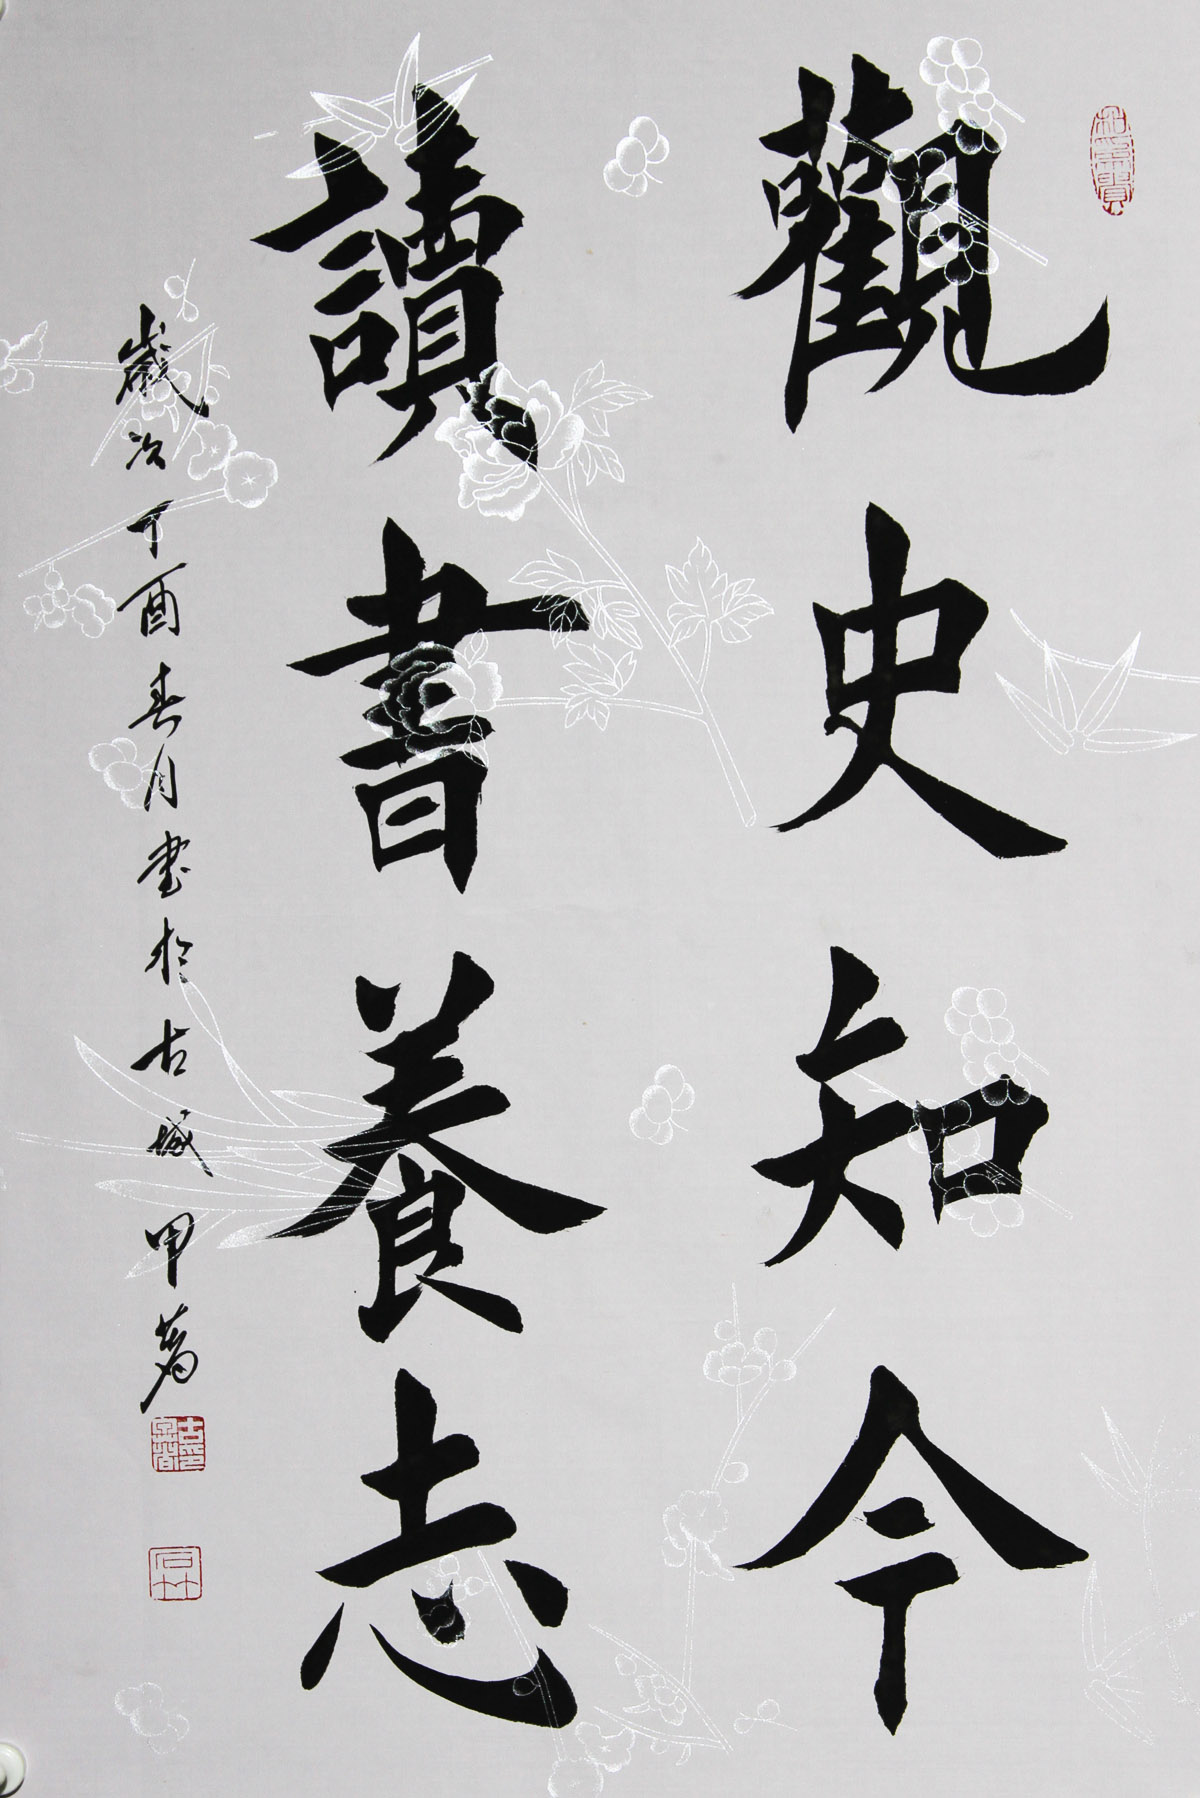 觀史知今
讀書養志
歲次丁酉春月書於古城甲萬
石林